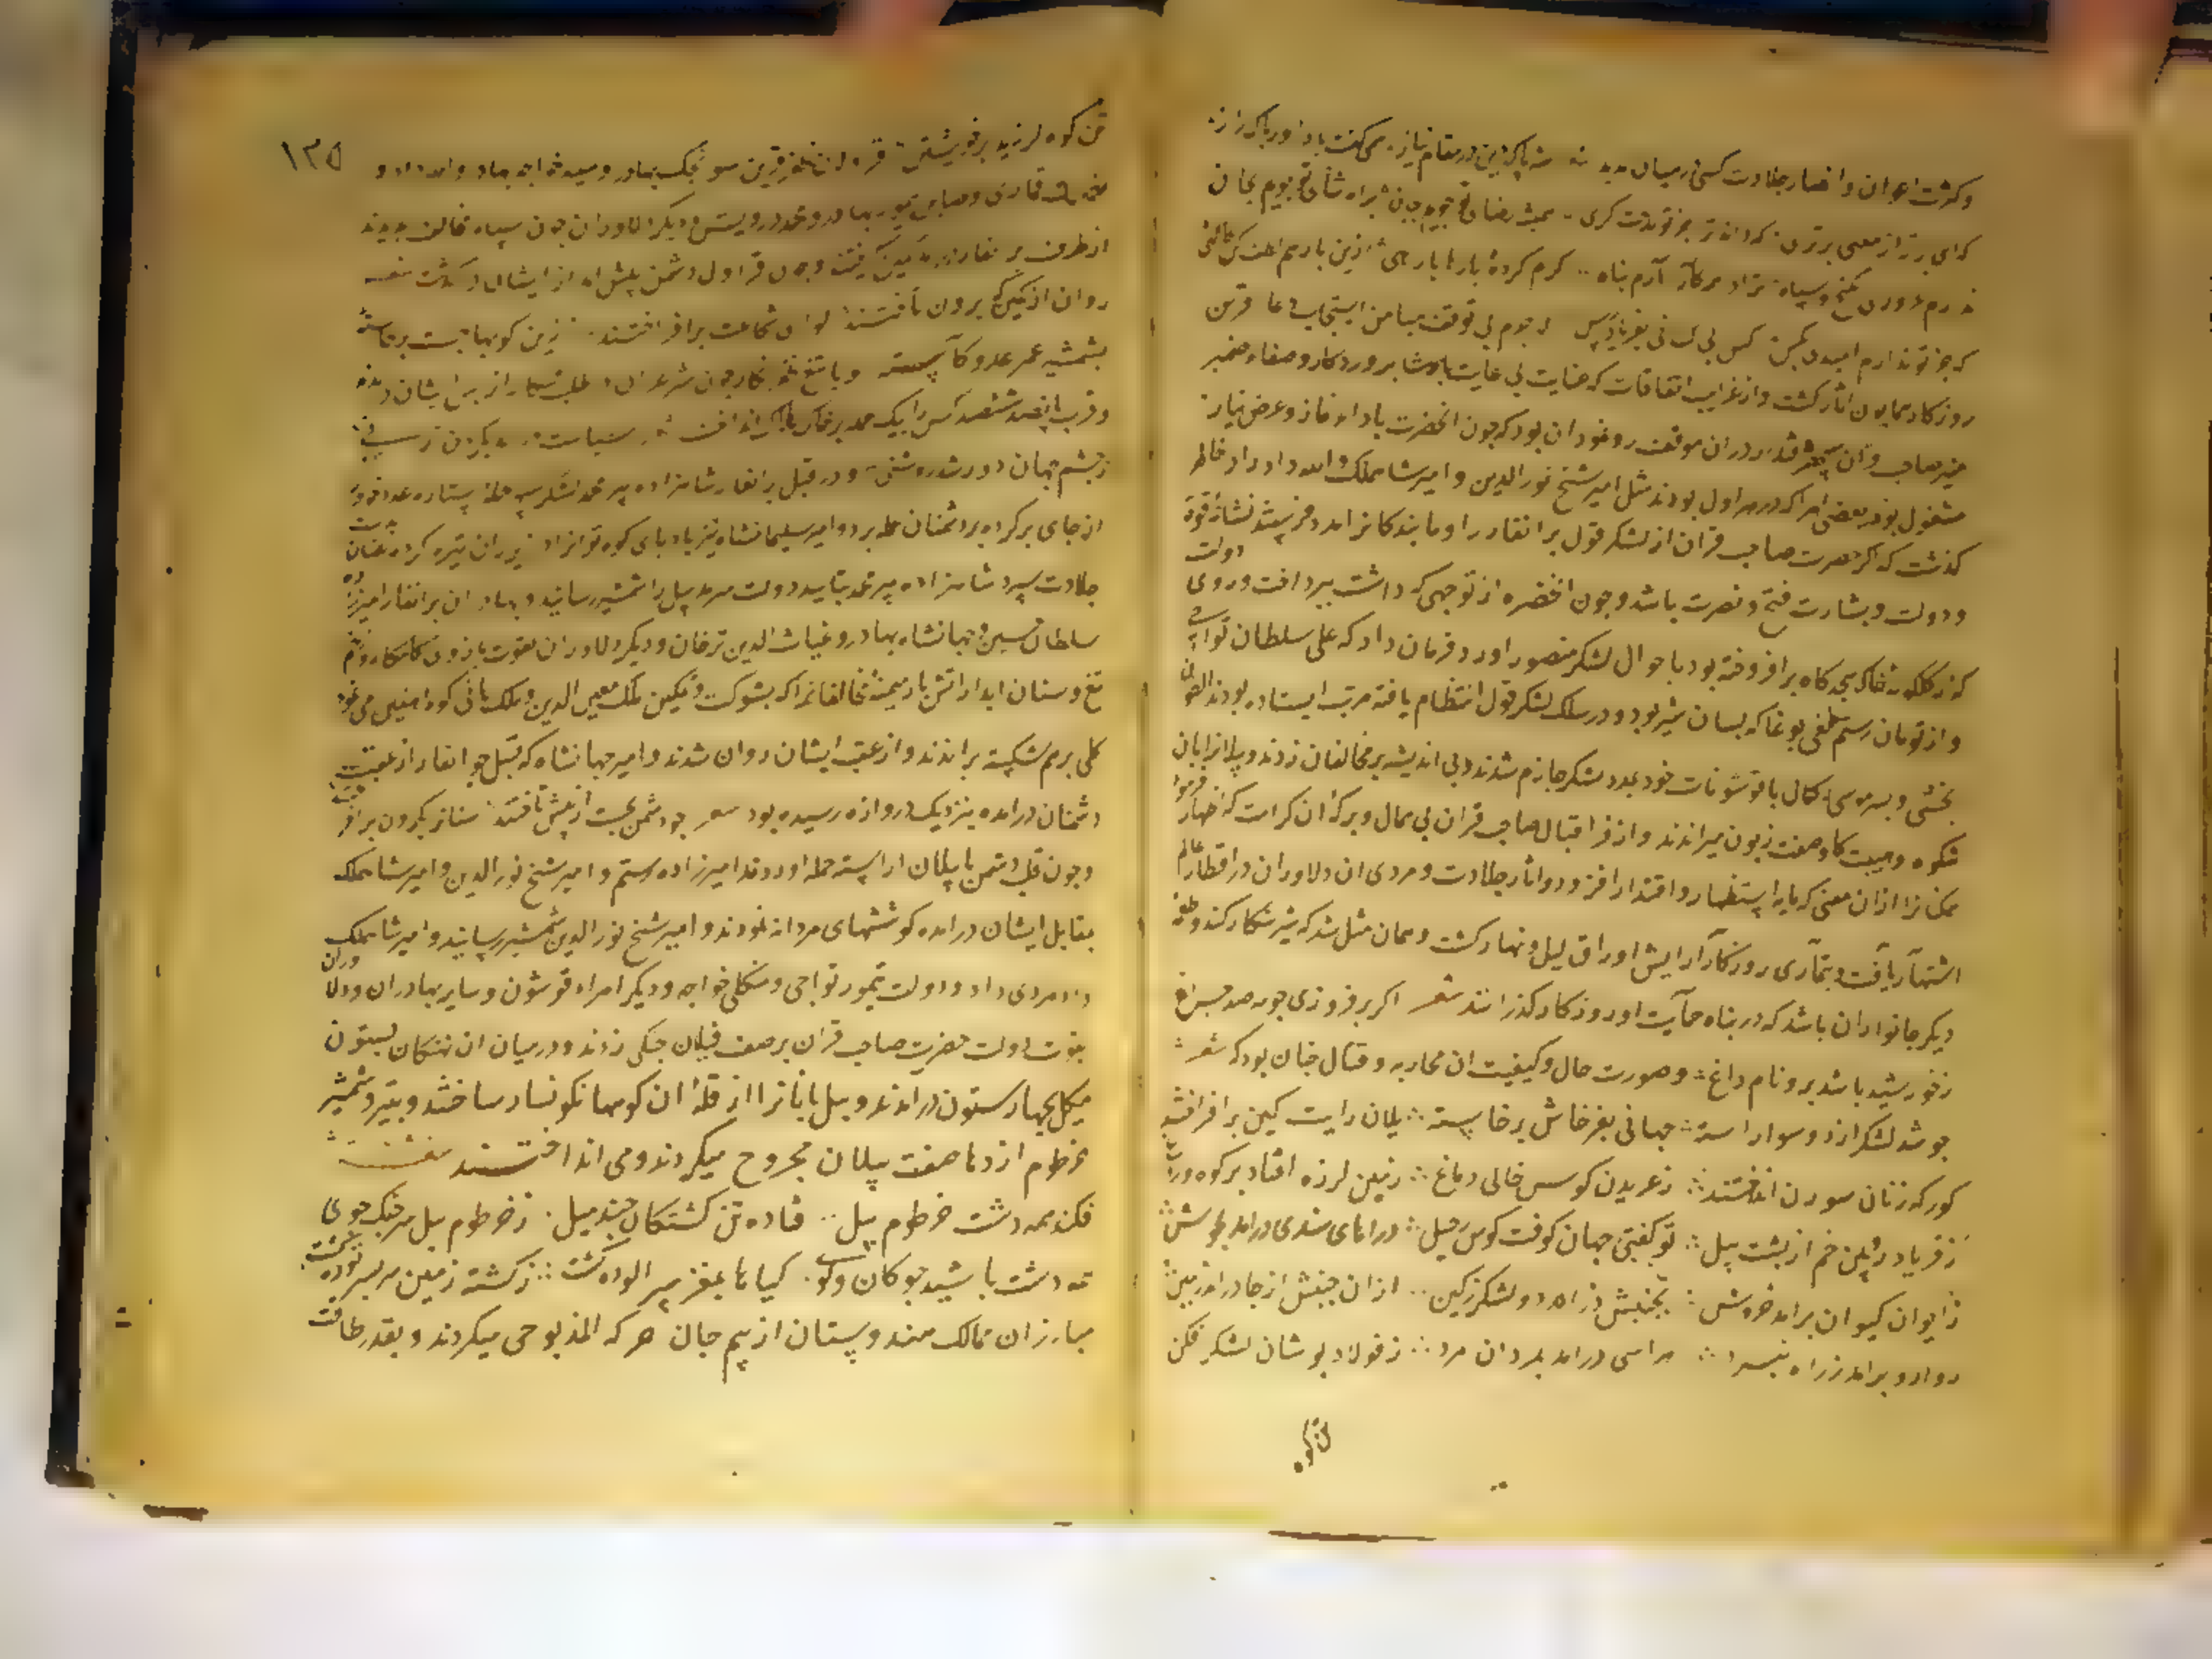 وکثرت اعوان وانصار جلادت کسی در میان شه پاک دین در مقام نیاز همی گفت با داور پاک راز
که ای برتر از معنی برتری که داند ترا جز تو بجان
ندارم من کنج و سپاه آرم پناه کرم کردهٔ بارها یار میی ازین بار هم
که جز تو ندارم امیدی بکس کس بی کسانی بفریادرس لاجرم بی توقف میامن استجابت دعا قرین
روزکار همایون آثار کشت واز غرایب اتفاقات که عنایت بی غایت پادشاه پروردکار وصفاء ضمیر
منیر صاحب قران دران موقف رو نمود ان بود که چون انحضرت باداء نماز وعرض نیاز
مشغول بود بعضی امرا که در هراول بودند مثل امیر شیخ نورالدین وامیر شاهملک والله داد را در خاطر
کذشت که اکر حضرت صاحب قران از لشکر قول برانغار را وما بندکانرا مدد فرستد نشانهٔ قوت دولت
ودولت وبشارت فتح ونصرت باشد وچون انحضرت از توجهی که داشت بپرداخت وروی
که از کلکونهٔ خاک سجدکاه برافروخته بود باحوال لشکر منصور اورد فرمان داد که علی سلطان تواجی
واز تومان رستم طغی بوغا که بسان شیر بود ودر سلک لشکر قول انتظام یافته مرتب ایستاده بودند التون
بخشی وپسر موسی رکمال با قوشونات خود بمدد لشکر جازم شدند وبی اندیشه بر مخالفان زدند وپیلانرا بان
شکوه وهیبت کاو صفت زبون میراندند واز فر اقبال صاحب قران بی همال وبرکه ان کرامت که اظهار فرمود
همکنانرا ازان معنی که مایه استظهار واقتدار افزود واثار جلادت ومردی ان دلاوران در اقطار عالم
اشتهار یافت وبتماری روزکار ارایش اوراق لیل ونهار کشت وهمان مثل شد که شیر شکار کند وطعمه
دیکر جانواران باشد که در پناه حمایت او روزکار کذرانند شعر اکر برفروزی چو مه صد چراغ
زخورشید باشد برو نام داغ وصورت حال وکیفیت ان محاربه وقتال چنان بود که شعر
چو شد لشکر از دو سو اراسته جهانی بپرخاش برخاسته یلان رایت کین برافراشتند
کورکه زنان سورن انداختند زغریدن کوس خالی دماغ زمین لرزه افتاد بر کوه وراغ
زفریاد رویین خم از پشت پیل تو کفتی جهان کوفت کوس رحیل درامای هندی درامد بجوش
زایوان کیوان برامد خروش بجنبش درامد دو لشکر زکین ازان جنبش از جا درامد زمین
روارو برامد زراه نبرد هراسی درامد بمردان مرد زفولاد پوشان لشکر شکن
تن کوه
۱۳۵
تن کوه لرزید بر خویشتن قراولان ظفر قرین سونجک بهادر وسید خواجه بهادر والله داد و
قماری وصاین تیمور بهادر ومحمد درویش ودیکر دلاوران چون سپاه مخالف بدیدند
از طرف برنغار درامده کمین کرفتند وچون قراول دشمن پیش امد از ایشان درکذشت شعر
روان از کمین که برون تاختند لوای شجاعت برافراختند زمین کوبها جست برخاسته
بشمشیر عمر عدو کاسته وبا تیغ خونخوار چون شیر غران طلب شکار از پی ایشان درامده
وقرب پانصد ششصد کس را بیک حمله بر خاک هلاک انداختند
زچشم جهان دور شد روشنی ودر قبل برانغار شاهزاده پیر محمد لشکر سپهر حمله ستاره عدد خود را
از جای برکرده بر دشمنان حمله برد وامیر سلیمانشاه نیز بادپای کوه توانرا دران تیره کرد بدست عنان
جلادت سپرد شاهزاده پیر محمد بتایید دولت سرمد پیل را شمشیر رسانید وبهادران برانغار امیرزاده
سلطان حسین وجهانشاه بهادر وغیاث الدین ترخان ودیکر دلاوران بقوت بازوی کامکار وزخم
تیغ وسنان ابدار اتش بار میمنه مخالفانرا که بشوکت وتمکین ملک معین الدین وملک هانی کوه اهنین می نمود
کلی برهم شکسته براندند واز عقب ایشان روان شدند وامیر جهانشاه که قبل جوانغار از عقب
دشمنان درامده بنزدیک دروازه رسیده بود شعر چو دشمن بجست از پیش تاختند سنانرا بکردون برافراختند
وچون قلب دشمن با پیلان اراسته حمله اوردند امیرزاده رستم وامیر شیخ نورالدین وامیر شاهملک
بمقابل ایشان درامده کوششهای مردانه نمودند وامیر شیخ نورالدین شمشیر رسانید وامیر شاهملک
داد مردی داد ودولت تیمور تواجی ومنکلی خواجه ودیکر امراء قوشون وسایر بهادران ودلاوران
بقوت دولت حضرت صاحب قران بر صف فیلان جنکی زدند ودرمیان ان نهنکان بستون
هیکل بچهار ستون درامدند وپیل بانانرا از قله ان کوهها نکونسار ساختند وبتیر وشمشیر
خرطوم اژدها صفت پیلان مجروح میکردند ومی انداختند
فکند همه دشت خرطوم پیل فتاده تن کشتکان چند میل زخرطوم پیل سر جنک جوی
همه دشت باشید چوکان وکوی کیاها بمغز سر الوده کشت زکشته زمین سر بسر توده کشت
مبارزان ممالک هندوستان از بیم جان حرکه المذبوحی میکردند وبقدر طاقت